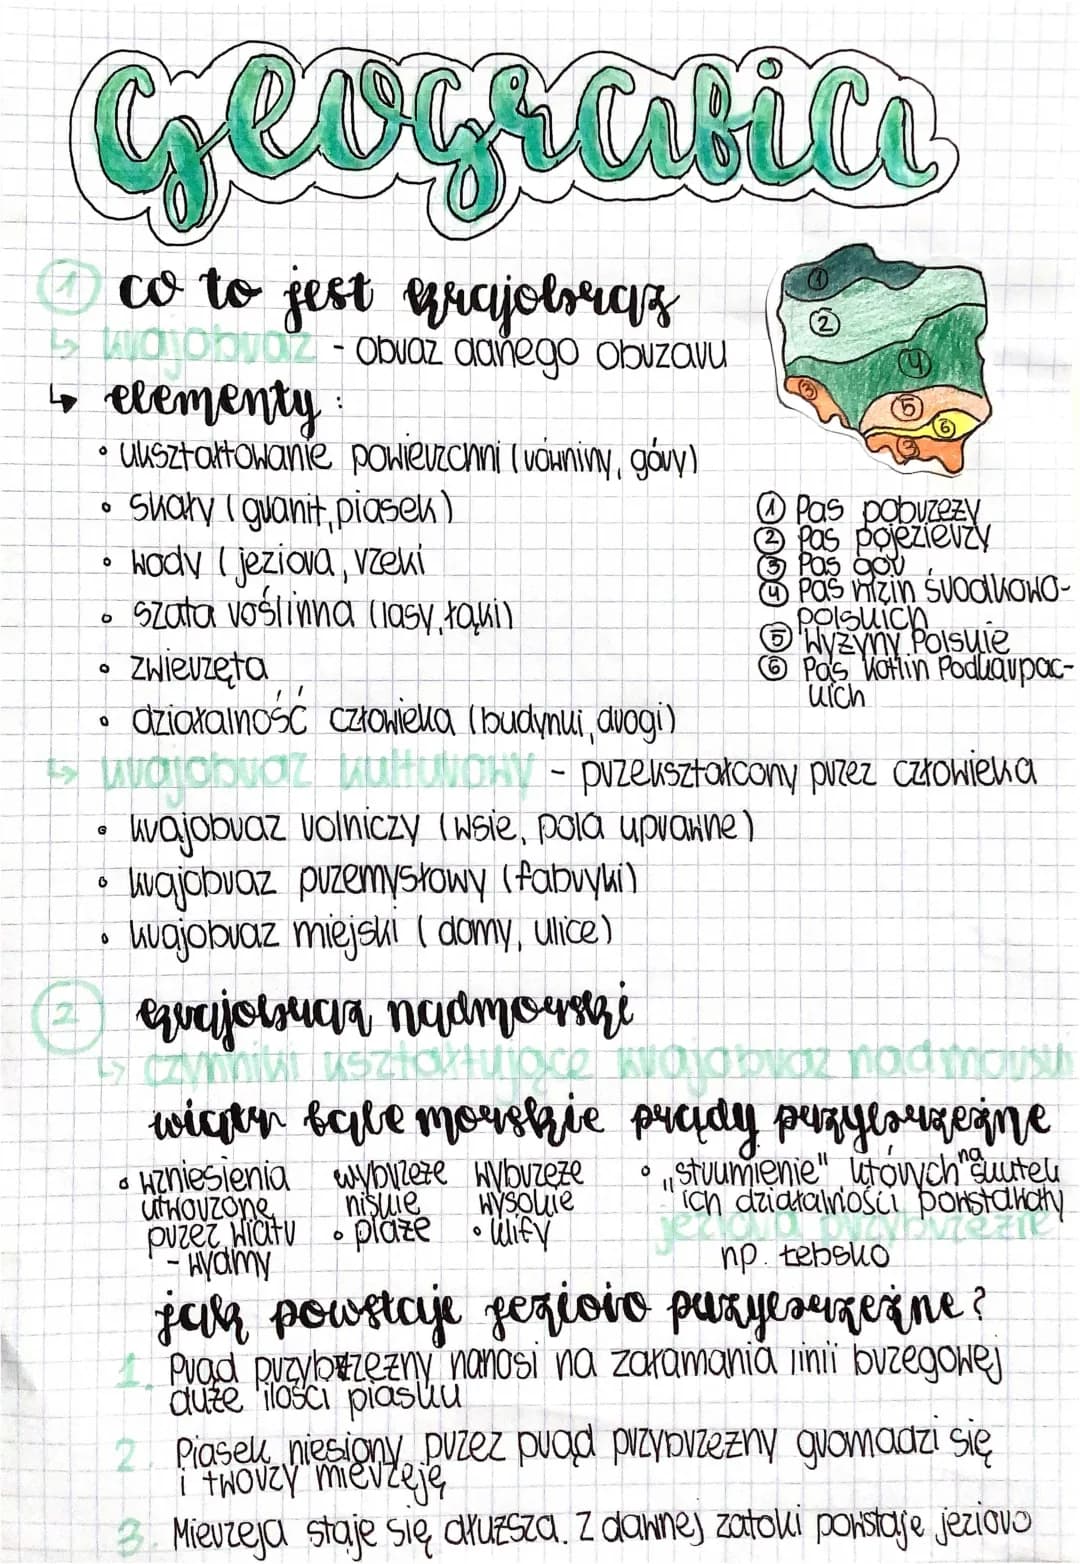 Geografia
1 co to jest krajobraz
↳ krajobraz - obraz danego obszaru
↳ elementy:
• ukształtowanie powierzchni (równiny, góry)
• skały (granit, piasek)
• wody (jeziora, rzeki
• szata roślinna (lasy, łąki)
• zwierzęta
• działalność człowieka (budynki, drogi)
1
2
4
3
5
6
3
① Pas pobrzeży
② Pas pojezierzy
③ Pas gór
④ Pas nizin środkowo-
polskich
⑤ Wyżyny Polskie
⑥ Pas Kotlin Podkarpac-
kich
↳ krajobraz kulturowy - przekształcony przez człowieka
• krajobraz rolniczy (wsie, pola uprawne)
• krajobraz przemysłowy (fabryki)
• krajobraz miejski (domy, ulice)
2 krajobraz nadmorski
↳ czynniki kształtujące krajobraz nadmorski
wiatr fale morskie prądy przybrzeżne
• wzniesienia
utworzone
przez wiatr
- wydmy
wybrzeże
niskie
• plaże
wybrzeże
wysokie
• klify
• "strumienie" których na skutek
ich działalności powstawały
jeziora przybrzeżne
np. Łebsko
jak powstaje jezioro przybrzeżne?
1. Prąd przybrzeżny nanosi na załamania linii brzegowej
duże ilości piasku
2. Piasek niesiony przez prąd przybrzeżny gromadzi się
i tworzy mierzeję
3. Mierzeja staje się dłuższa. Z dawnej zatoki powstaje jezioro